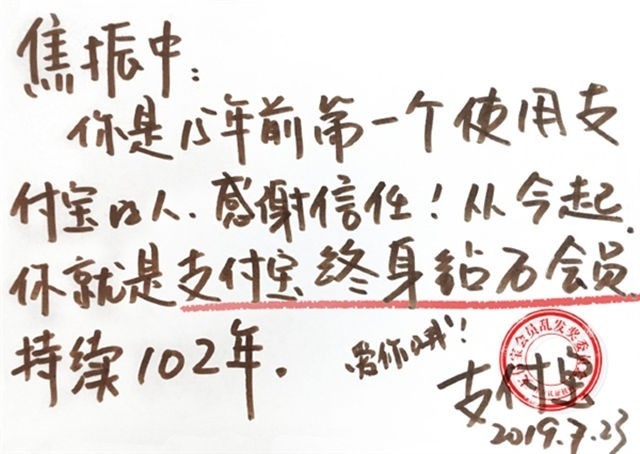 焦振中:
你是15年前第一个使用支
付宝的人.感谢信任!从今起.
你就是支付宝终身钻石会员.
持续102年.
爱你的我!
支付宝
宝会员乱发奖委
2019.7.23